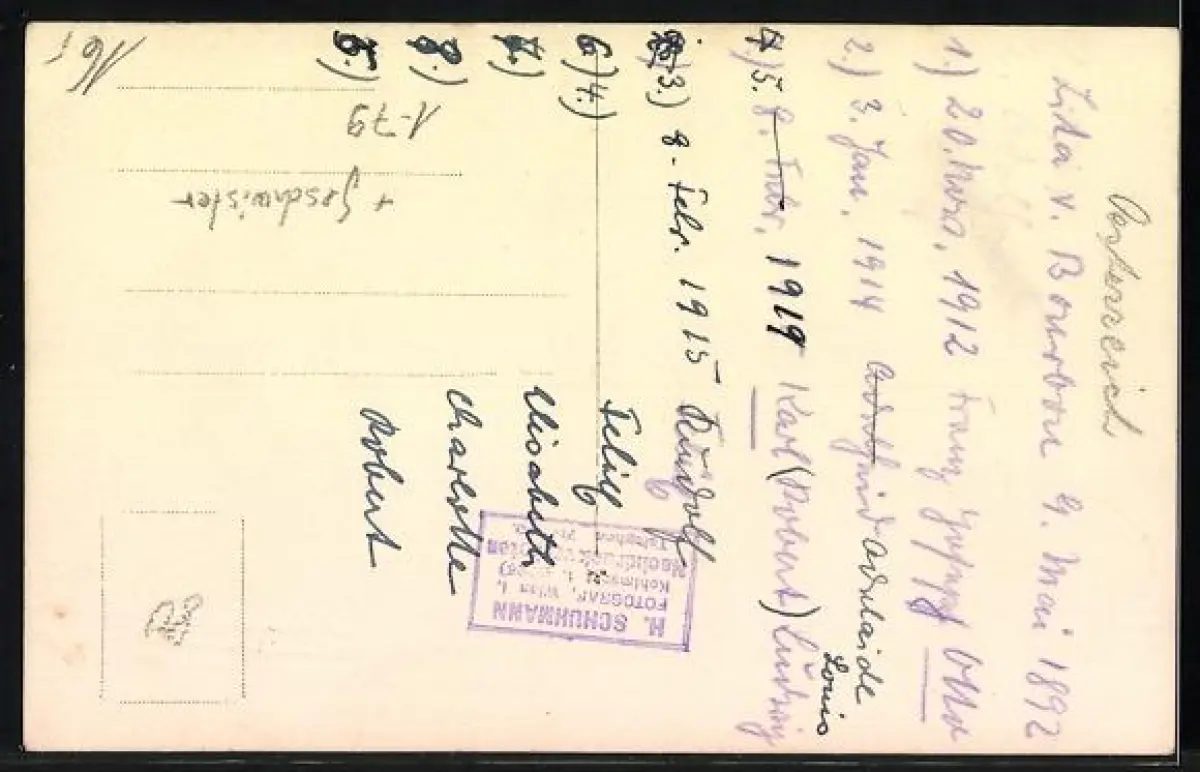 Oesterreich
Zita v. Bourbon 9. Mai 1892
1.) 20. Nov., 1912 Franz Joseph Otto
2.) 3. Jan. 1914 Adelheid Adelaide
Louis
4) 5. 8. Febr. 1919 Karl (Robert) Ludwig
3.) 8. Febr. 1915 Rudolf
6) 4.) Felix
7.) Elisabeth
8.) Charlotte
5.) Robert
165
1-79
+ Geschwister
H. SCHUHMANN
FOTOGRAF, Wien I,
Nachdruck verboten
Telephon